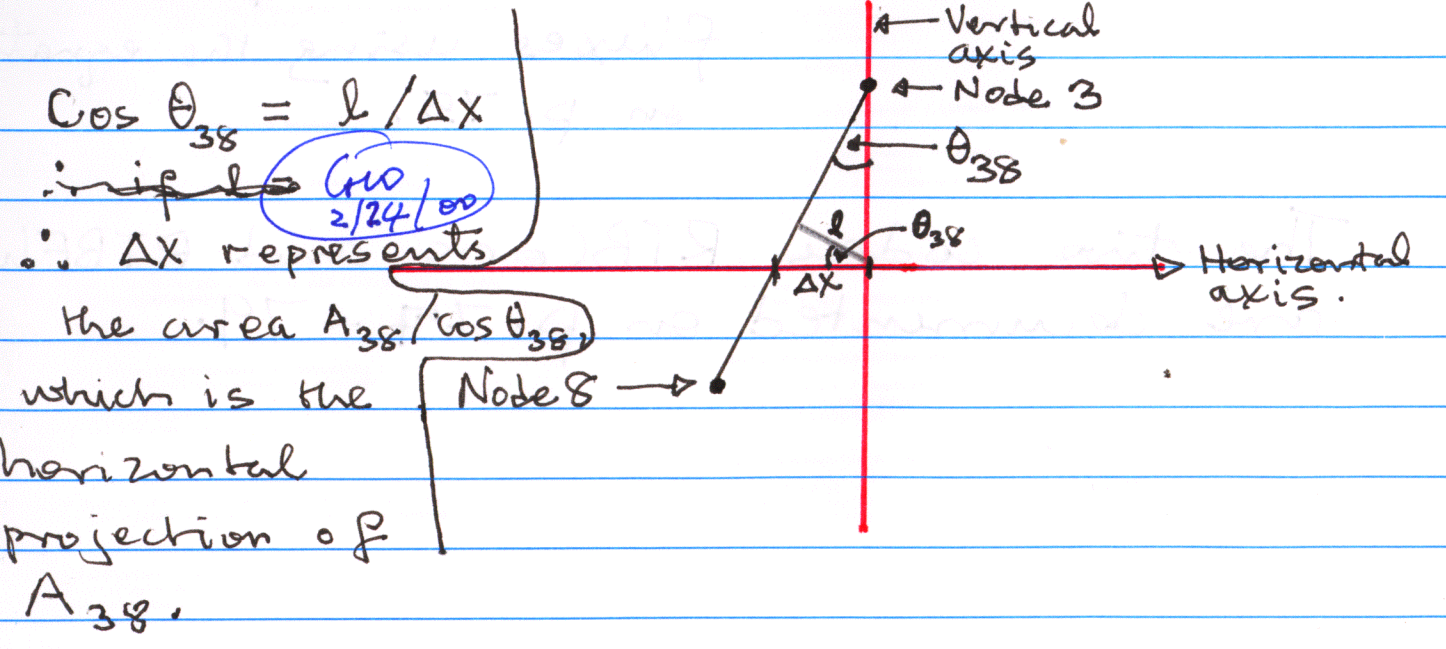 Cos θ38 = l / Δx
∴ if l =
GHO
2/24/00
∴ Δx represents
the area A38/cos θ38,
which is the
horizontal
projection of
A38.
Vertical
axis
Node 3
θ38
l
θ38
Δx
Horizontal
axis.
Node 8